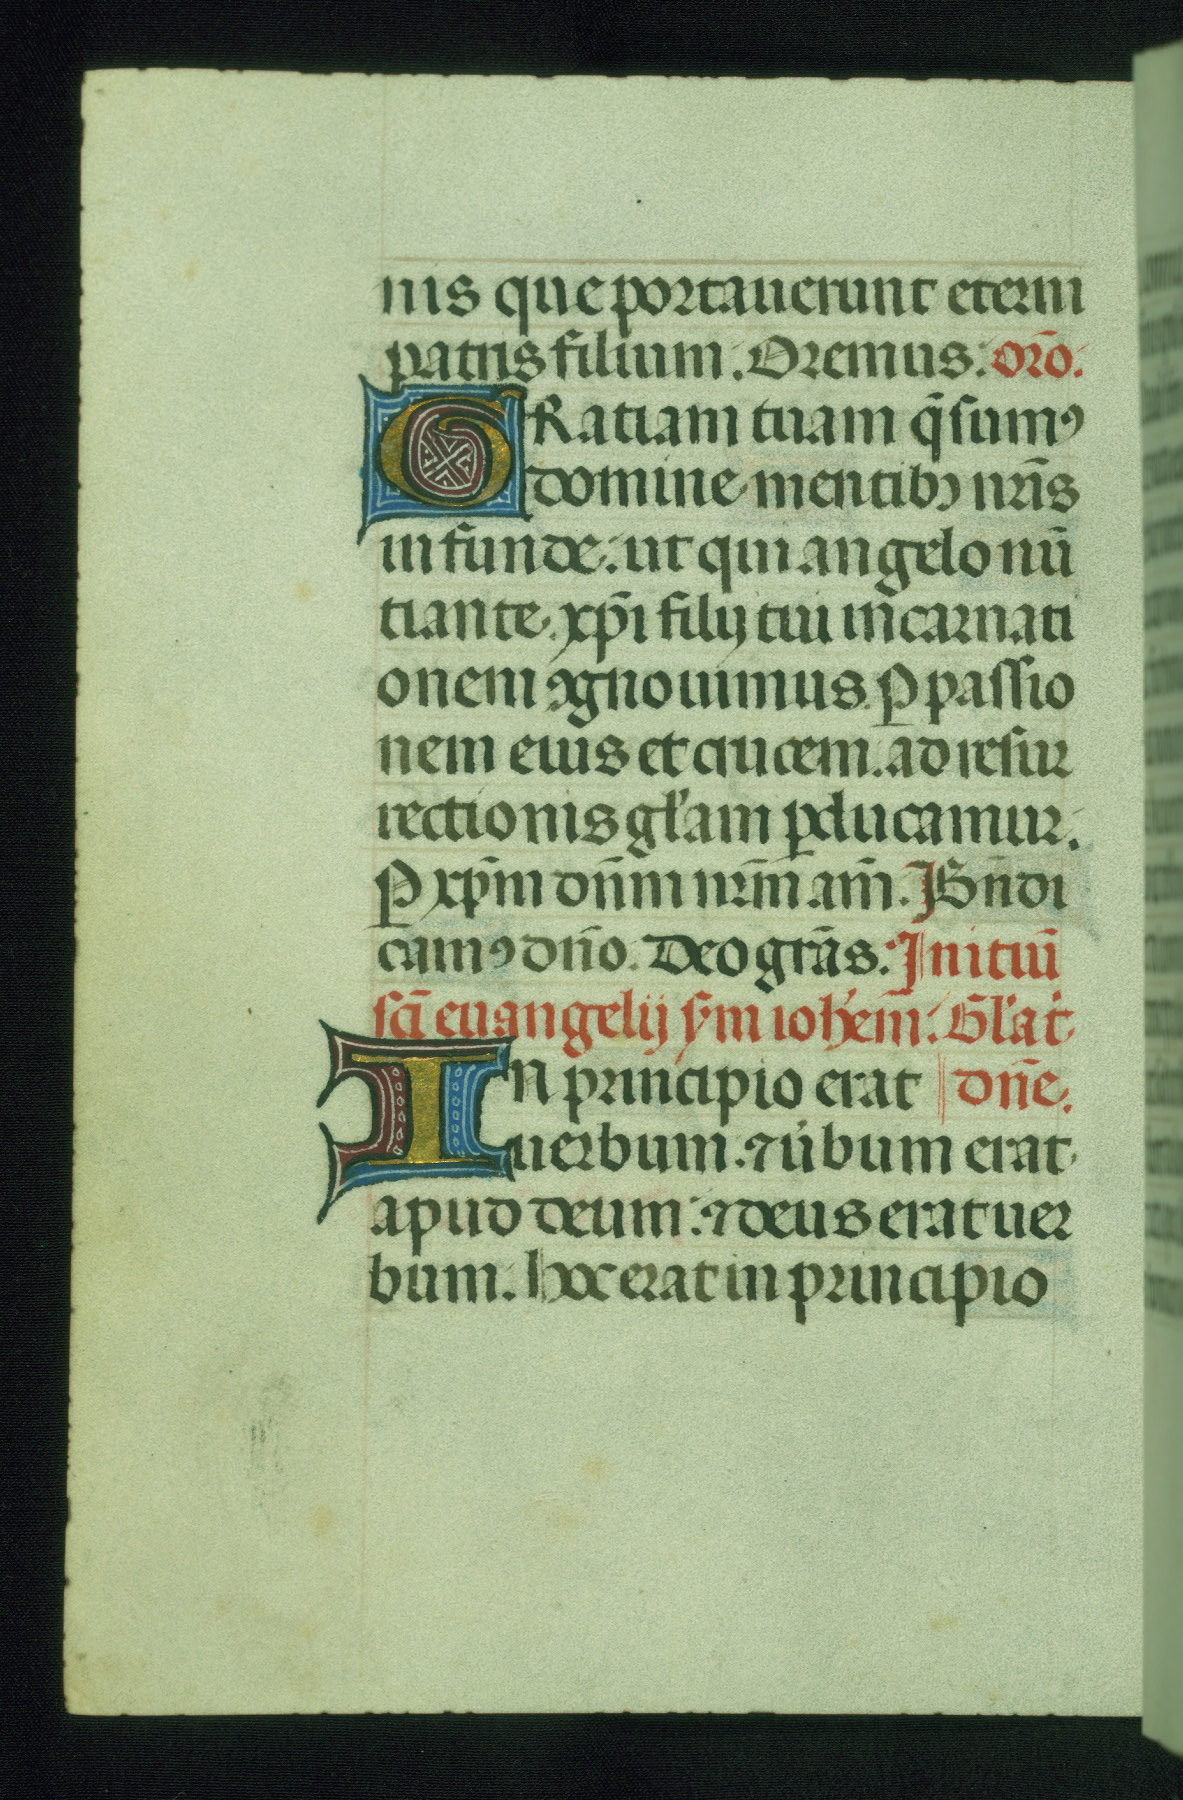 nis que portauerunt eterni
patris filium. Oremus: orō.
GRatiam tuam q̄sumꝰ
domine mentibꝫ nr̄is
infunde: ut qui angelo nū
tiante xp̄i filij tui in̄carnati
onem ꝯgnouimus. P passio
nem eius et crucem. ad resur
rectionis gl'am ꝑducamur.
P xp̄m dn̄m nr̄m am̄. Bn̄di
camꝰ dn̄o. Deo gr̄as. Initiū
sc̄i euangelij ẜm ioh'em̄: Gl'a t'
IN principio erat dn̄e.
uerbum. ⁊ u̍bum erat
apud deum: ⁊ deus erat uer
bum. hoc erat in principio